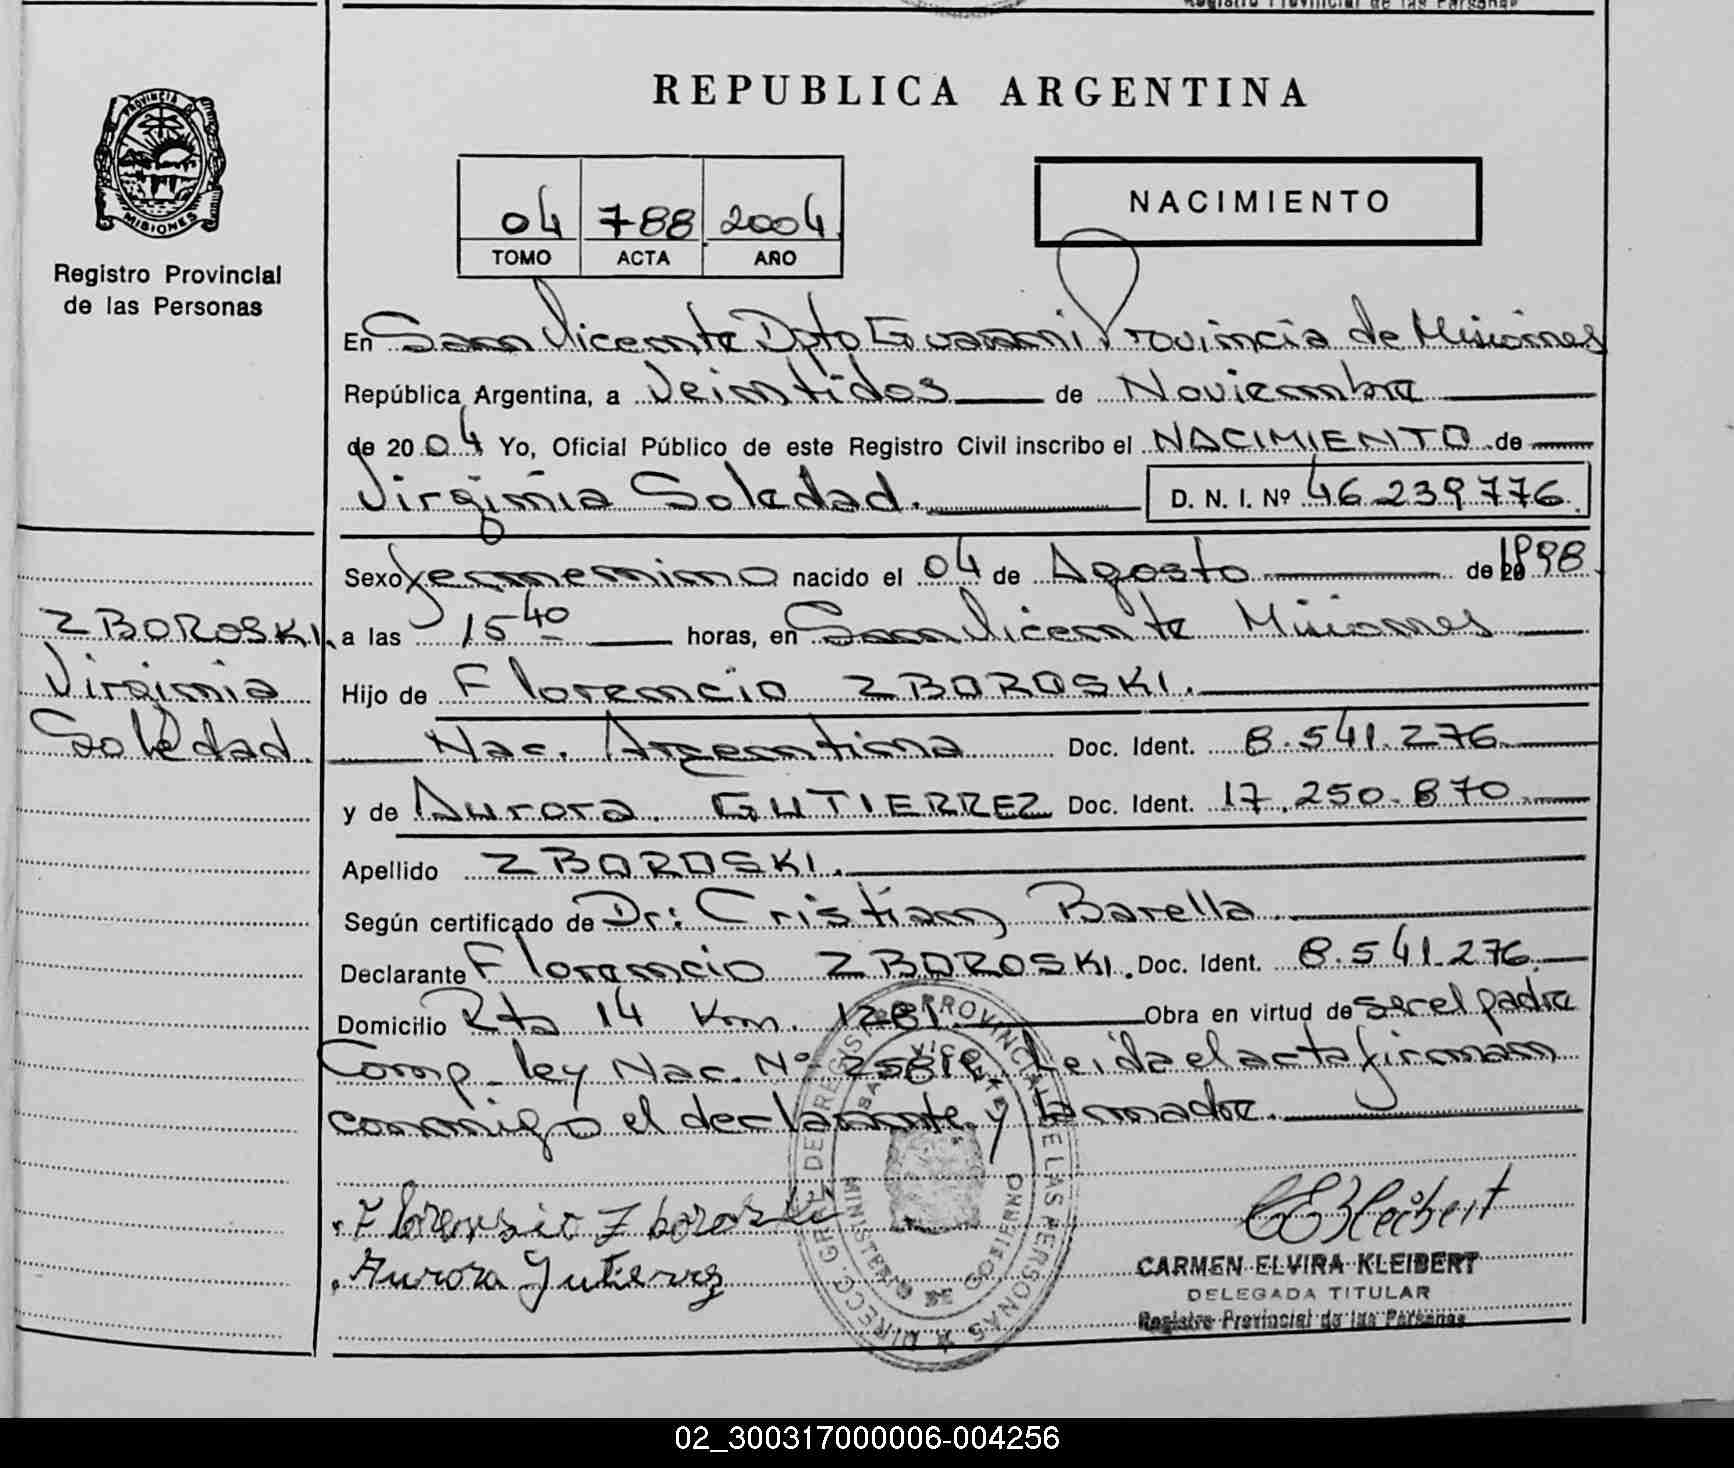 Registro Provincial de las Personas
PROVINCIA DE
MISIONES
Registro Provincial
de las Personas
REPUBLICA ARGENTINA
04 788 2004
TOMO ACTA AÑO
NACIMIENTO
En San Vicente Dpto Guarani Provincia de Misiones
República Argentina, a Veintidos de Noviembre
de 2004 Yo, Oficial Público de este Registro Civil inscribo el NACIMIENTO de
Virginia Soledad. D. N. I. Nº 46.239.776.
Sexo femenino nacido el 04 de Agosto de 1998.
ZBOROSKI. a las 15 40 horas, en San Vicente Misiones
Virginia Hijo de Florencio ZBOROSKI.
Soledad. Nac. Argentina Doc. Ident. 8.541.276
y de Aurora GUTIERREZ Doc. Ident. 17.250.870
Apellido ZBOROSKI.
Según certificado de Dr: Cristian Barella
Declarante Florencio ZBOROSKI. Doc. Ident. 8.541.276
Domicilio Rta 14 Km. 1281 Obra en virtud de ser el padre
Comp. ley Nac. Nº Leida el acta firman
conmigo el declarante y la madre.
DIRECC. GRAL. DE REGISTRO PROVINCIAL DE LAS PERSONAS
SAN VICENTE
MINISTERIO DE GOBIERNO
Florensio Zboroski
Aurora Gutierrez
CEKleibert
CARMEN ELVIRA KLEIBERT
DELEGADA TITULAR
Registro Provincial de las Personas
02_300317000006-004256